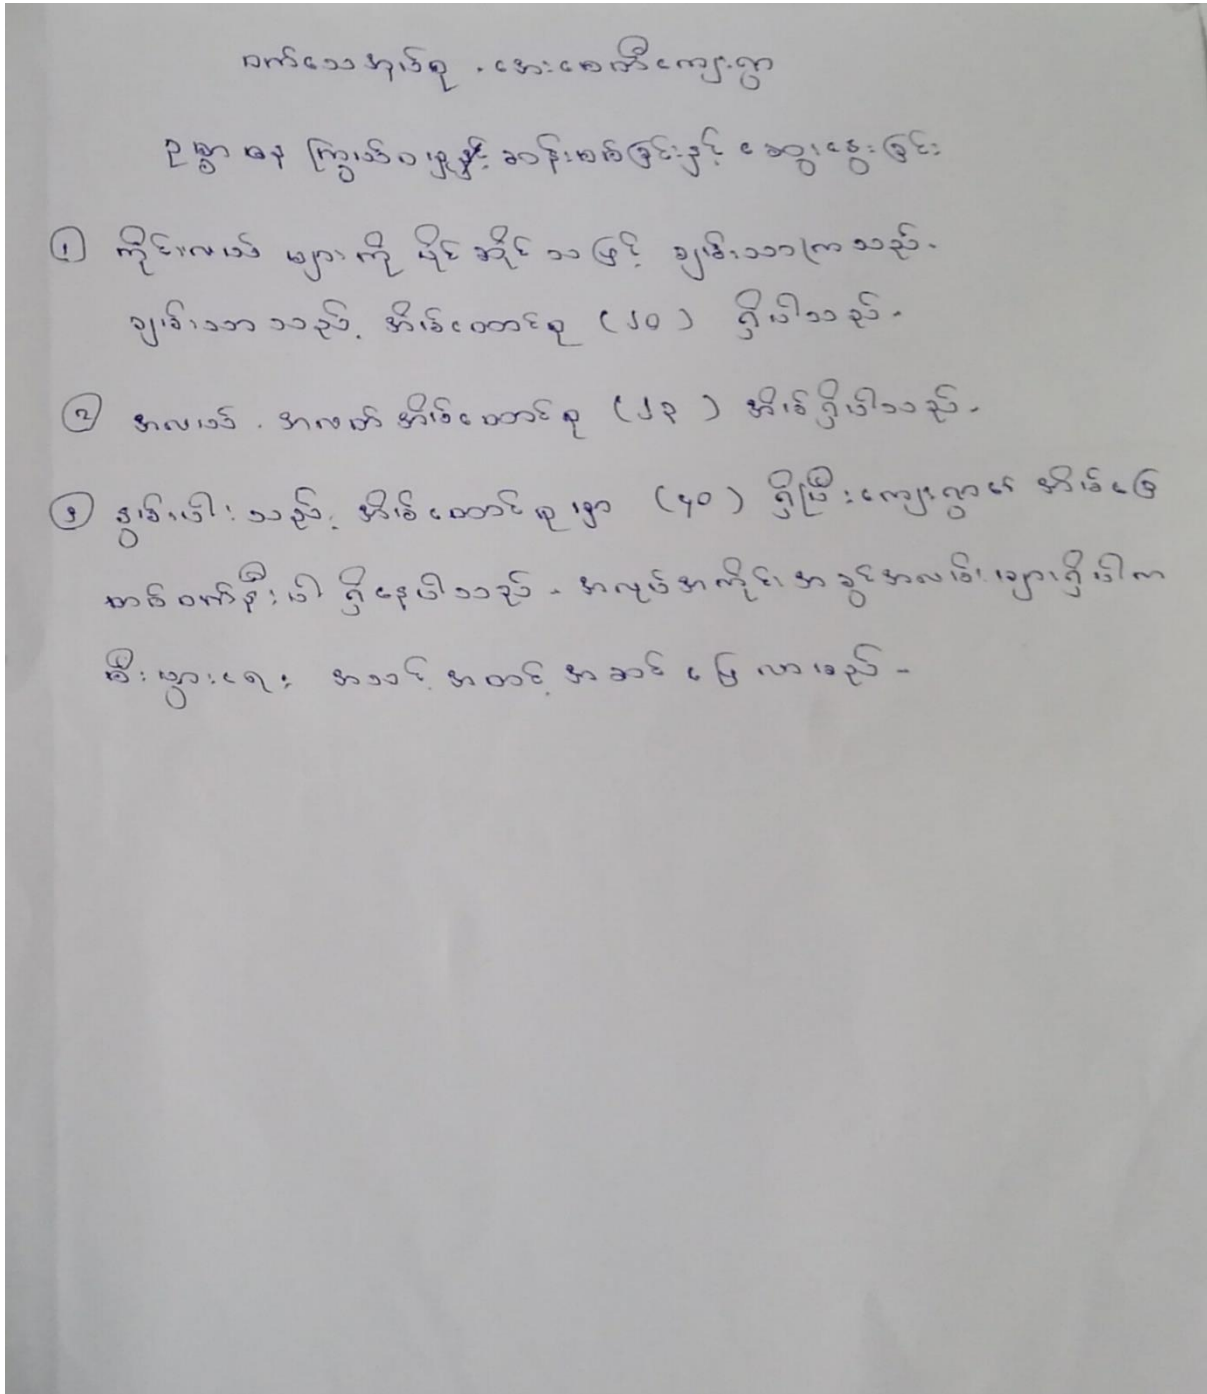 ဝက်သေအုပ်စု ၊ အေးစေတီကျေးရွာ
ဥစ္စာဓန ကြွယ်ဝမှုနှင့် ဆန်းစစ်ခြင်းနှင့် ဆွေးနွေးခြင်း
① ကိုင်းလယ် များကို ပိုင်ဆိုင်သဖြင့် ချမ်းသာကြသည်။
ချမ်းသာသည့် အိမ်ထောင်စု (၂၀) ရှိပါသည်။
② အလယ် အလတ် အိမ်ထောင်စု (၂၃) အိမ်ရှိပါသည်။
③ နွမ်းပါးသည့် အိမ်ထောင်စုမှာ (၄၀) ရှိပြီးကျေးရွာ၏ အိမ်ခြေ
ထက်ဝက်နီးပါ ရှိနေပါသည်။ အလုပ်အကိုင် အခွင့်အလမ်းများရှိပါက
စီးပွားရေး အသင့်အတင့် အဆင်ပြေလာမည်။